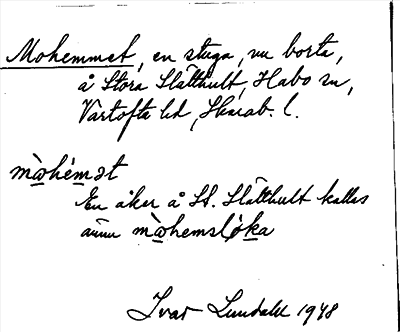 Mohemmet, en stuga, nu borta,
å Stora Slätthult, Habo sn,
Vartofta hd, Skarab. l.
mωhémət
En åker å St. Slätthult kallas
ännu mωhemsløka
Ivar Lundahl 1948